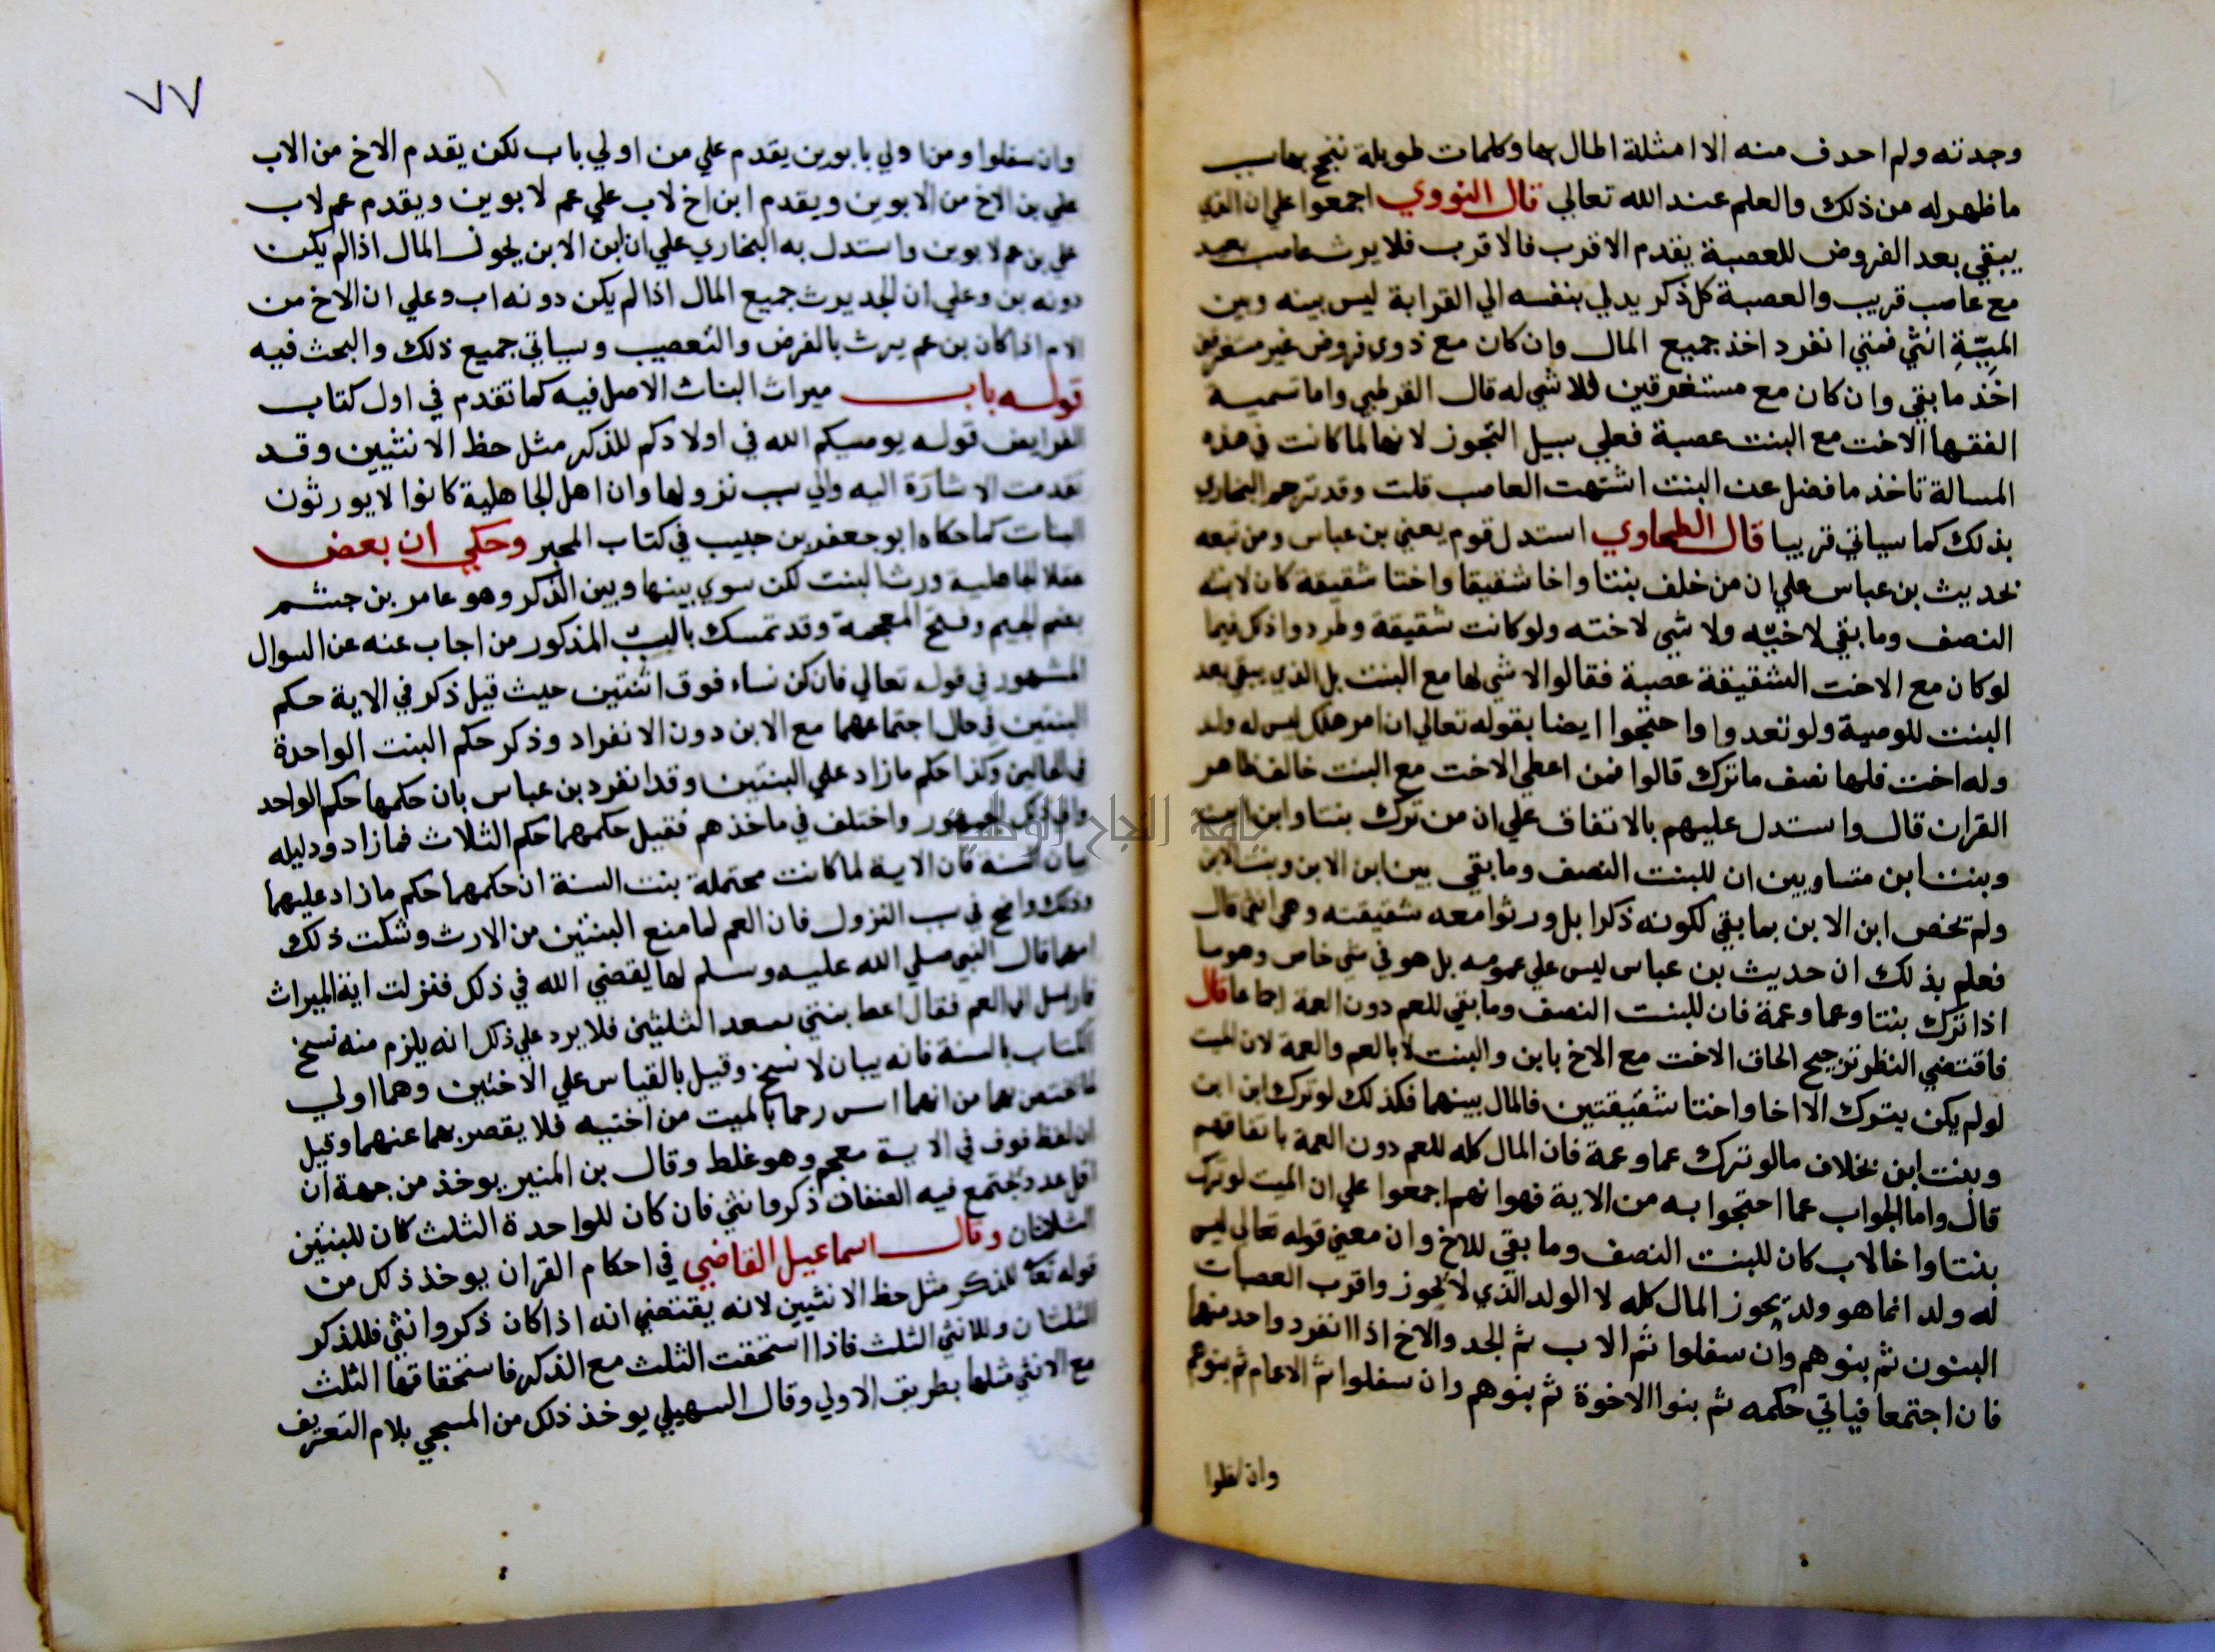 وجدته ولم احذف منه الا امثلة اطال بها وكلمات طويلة تبجح بها بسبب
ما ظهر له من ذلك والعلم عند الله تعالي قال النووي اجمعوا علي ان الذي
يبقي بعد الفروض للعصبة يقدم الاقرب فالاقرب فلا يرث عاصب بعيد
مع عاصب قريب والعصبة كل ذكر يدلي بنفسه الي القرابة ليس بينه وبين
الميت انثي فمتي انفرد اخذ جميع المال وان كان مع ذوي فروض غير مستغرقين
اخذ ما بقي وان كان مع مستغرقين فلا شي له قال القرطبي واما تسمية
الفقها الاخت مع البنت عصبة فعلي سبيل التجوز لانها لما كانت في هذه
المسالة تاخذ ما فضل عن البنت اشبهت العاصب قلت وقد ترجم البخاري
بذلك كما سياتي قريبا قال الطحاوي استدل قوم يعني بن عباس ومن تبعه
بحديث بن عباس علي ان من خلف بنتا واخا شقيقا واختا شقيقة كان لابنته
النصف وما بقي لاخيه ولا شي لاخته ولو كانت شقيقة وطردوا ذلك فيما
لو كان مع الاخت الشقيقة عصبة فقالوا لا شي لها مع البنت بل الذي يبقي بعد
البنت للعصبة ولو تعددوا واحتجوا ايضا بقوله تعالي ان امرء هلك ليس له ولد
وله اخت فلها نصف ما ترك قالوا فمن اعطي الاخت مع البنت خالف ظاهر
القران قال واستدل عليهم بالاتفاق علي ان من ترك بنتا وابن ابن
وبنت ابن متساويين ان للبنت النصف وما بقي بين ابن الابن وبنت الابن
ولم يخص ابن الابن بما بقي لكونه ذكرا بل ورثوا معه شقيقته وهي انثي قال
فعلم بذلك ان حديث بن عباس ليس علي عمومه بل هو في شي خاص وهو ما
اذا ترك بنتا وعما وعمة فان للبنت النصف وما بقي للعم دون العمة اجماعا قال
فاقتضي النظر ترجيح الحاق الاخت مع الاخ بابن والبنت لا بالعم والعمة لان الميت
لو لم يكن يترك الا اخا واختا شقيقتين فالمال بينهما فكذلك لو ترك ابن ابن
وبنت ابن بخلاف ما لو ترك عما وعمة فان المال كله للعم دون العمة باتفاقهم
قال واما الجواب عما احتجوا به من الاية فهو انهم اجمعوا علي ان الميت لو ترك
بنتا واخا لاب كان للبنت النصف وما بقي للاخ وان معني قوله تعالي ليس
له ولد انما هو ولد يحوز المال كله لا الولد الذي لا يحوز واقرب العصبات
البنون ثم بنوهم وان سفلوا ثم الاب ثم الجد والاخ اذا انفرد واحد منهما
فان اجتمعا فياتي حكمه ثم بنوا الاخوة ثم بنوهم وان سفلوا ثم الاعمام ثم بنوهم
وان سفلوا
٧٧
وان سفلوا ومن ادلي بابوين يقدم علي من ادلي باب لكن يقدم الاخ من الاب
علي بن الاخ من الابوين ويقدم ابن اخ لاب علي عم لابوين ويقدم عم لاب
علي بن عم لابوين واستدل به البخاري علي ان ابن الابن يحوز المال اذا لم يكن
دونه بن وعلي ان الجد يرث جميع المال اذا لم يكن دونه اب وعلي ان الاخ من
الام اذا كان بن عم يرث بالفرض والتعصيب وسياتي جميع ذلك والبحث فيه
قوله باب ميراث البنات الاصل فيه كما تقدم في اول كتاب
الفرايض قوله يوصيكم الله في اولادكم للذكر مثل حظ الانثيين وقد
تقدمت الاشارة اليه والي سبب نزولها وان اهل الجاهلية كانوا لا يورثون
البنات كما حكاه ابو جعفر بن حبيب في كتاب المحبر وحكي ان بعض
عقلا الجاهلية ورث البنت لكن سوي بينها وبين الذكر وهو عامر بن جشم
بضم الجيم وفتح المعجمة وقد تمسك بالسبب المذكور من اجاب عنه عن السوال
المشهور في قوله تعالي فان كن نساء فوق اثنتين حيث قيل ذكر في الاية حكم
البنتين في حال اجتماعهما مع الابن دون الانفراد وذكر حكم البنت الواحدة
في الحالين وكذا حكم ما زاد علي البنتين وقد انفرد بن عباس بان حكمها حكم الواحد
وابي ذلك الجمهور واختلف في ماخذهم فقيل حكمهما حكم الثلاث فما زاد ودليله
بيان السنة فان الاية لما كانت محتملة بنت السنة ان حكمهما حكم ما زاد عليهما
وذلك واضح في سبب النزول فان العم لما منع البنتين من الارث وشكت ذلك
امهما قال النبي صلي الله عليه وسلم لها يقضي الله في ذلك فنزلت اية الميراث
فارسل الي العم فقال اعط بنتي سعد الثلثين فلا يرد علي ذلك انه يلزم منه نسخ
الكتاب بالسنة فانه بيان لا نسخ وقيل بالقياس علي الاختين وهما اولي
لما يختص بهما من انهما امس رحما بالميت من اختيه فلا يقصر بهما عنهما وقيل
ان لفظ فوق في الاية مقحم وهو غلط وقال بن المنير يوخذ من جهة ان
اقل عدد يجتمع فيه الصنفان ذكر وانثي فان كان للواحدة الثلث كان للبنتين
الثلثان وقال اسماعيل القاضي في احكام القران يوخذ ذلك من
قوله تعا للذكر مثل حظ الانثيين لانه يقتضي انه اذا كان ذكر وانثي فللذكر
الثلثان وللانثي الثلث فاذا استحقت الثلث مع الذكر فاستحقاقها الثلث
مع الانثي مثلها بطريق الاولي وقال السهيلي يوخذ ذلك من المسجي بلام التعريف
جامعة النجاح الوطنية